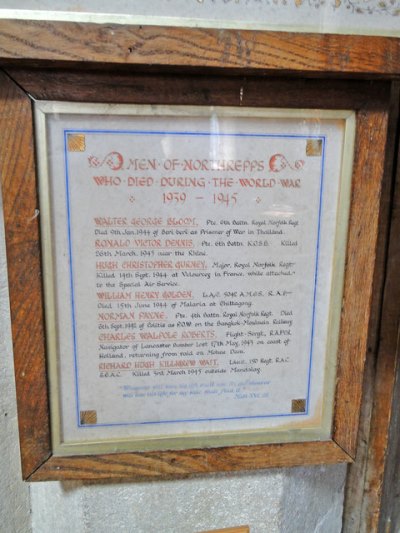 MEN · OF · NORTHREPPS
WHO · DIED · DURING · THE · WORLD · WAR
1939 – 1945
WALTER GEORGE BLOOM, Pte. 6th Battn. Royal Norfolk Regt.
Died 9th Jan. 1944 of Beri beri as Prisoner of War in Thailand.
RONALD VICTOR DENNIS, Pte. 6th Battn. K.O.S.B. Killed
26th March. 1945 near the Rhine.
HUGH CHRISTOPHER GURNEY, Major, Royal Norfolk Regt.
Killed 14th Sept. 1944 at Velourcey in France, while attached
to the Special Air Service.
WILLIAM HENRY GOLDEN, L.A.C. R.A.F.
Died 15th June 1944 of Malaria at Chittagong.
NORMAN PAYNE, Pte. 4th Battn. Royal Norfolk Regt. Died
of Colitis as P.O.W. on the Bangkok-Moulmein Railway.
CHARLES WALPOLE ROBERTS, Flight-Sergt., R.A.F.V.R.
Navigator of Lancaster Bomber Lost 17th May, 1943 on coast of
Holland, returning from raid on Mohne Dam.
RICHARD HUGH KILLIGREW WAIT, Lieut. 150 Regt. R.A.C.
Killed 3rd March 1945 outside Mandalay.
"Whosoever will save his life shall lose it: and whosoever
will lose his life for my sake shall find it."